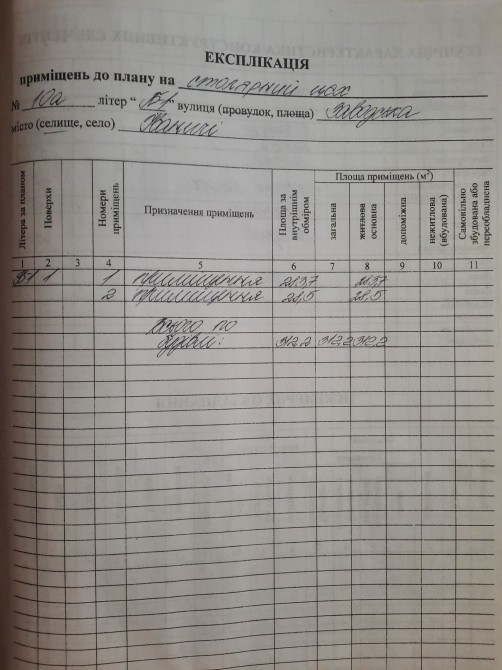 ЕКСПЛІКАЦІЯ
приміщень до плану на столярний цех
№ 10а літер "Б1" вулиця (провулок, площа) Заводська
місто (селище, село) Іваничі
Літера за планом
Поверхи
Номери приміщень
Призначення приміщень
Площа за внутрішнім обміром
Площа приміщень (м²)
загальна
житлова основна
допоміжна
нежитлова (вбудована)
Самовільно збудована або переобладнана
1 2 3 4 5 6 7 8 9 10 11
Б1 1 1 приміщення 283,7 283,7
2 приміщення 28,5 28,5
Всього по
будівлі: 312,2 312,2 312,2